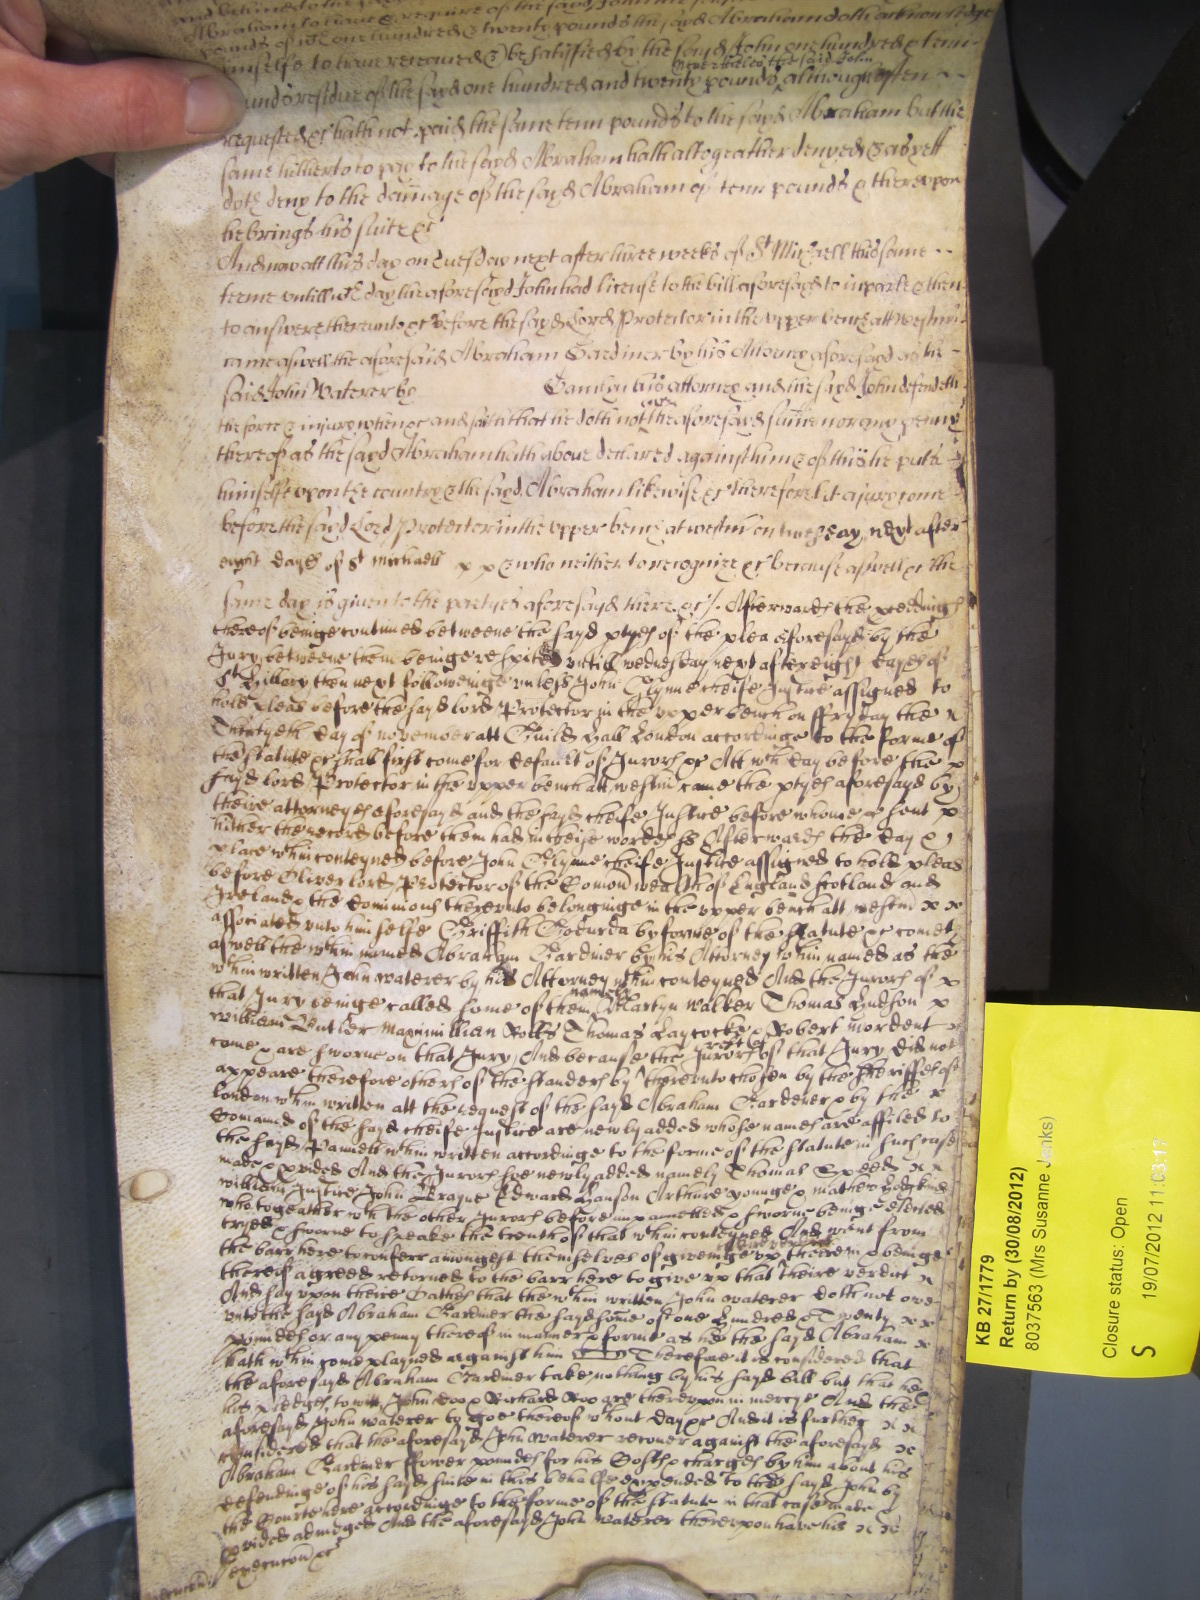 Abraham to have & require of the sayd John the
pounds of wch one hundred & twenty pounds the sayd Abraham doth acknowledge
himselfe to have received & be satisfied by the sayd John one hundred & tenn
nevertheles the said John
pounds residue of the sayd one hundred and twenty pounds although often
requested &c hath not paid the same tenn pounds to the sayd Abraham but the
same hitherto to pay to the sayd Abraham hath altogeather denyed & as yett
doth deny to the damage of the sayd Abraham of tenn pounds & thereupon
he brings his suite &c
And now att this day on Tuesday next after three weeks of St Michaell this same
terme untill wch day the aforesayd John had license to the bill aforesayd to imparle & then
to answere thereunto &c before the sayd Lord Protector in the upper bench att westmr
came aswell the aforesaid Abraham Gardiner by his Attorney aforesayd as the
said John Waterer by his attorney and the sayd John defendeth
the force & injury when &c and saith that he doth not owe the aforesayd summe nor any penny
thereof as the sayd Abraham hath above declared against him & of this he putts
himselfe upon the country & the sayd Abraham likewise &c therefore let a jury come
before the sayd Lord Protector in the upper bench at westmr on tuesday next after
eight dayes of St Michaell x x & who neither to recognize &c because aswell &c the
same day is given to the partyes aforesayd there &c /. Afterwards the proceedings
thereof beinge continued betweene the sayd ptyes of the plea aforesayd by the
Jury betweene them beinge respited untill wednesday next after eight dayes of
St Hillary then next followinge unless John Glynne cheife Justice assigned to
hold pleas before the sayd lord Protector in the upper bench on ffryday the x
Thirtyeth day of november att Guild Hall London accordinge to the forme of
the statute &c shall first come for default of Jurors &c Att wch day before the
sayd lord Protector in the upper bench att westmr came the ptyes aforesayd by
theire attorneyes aforesayd and the sayd cheife Justice before whome &c sent
hither the record before them had in theise words ss Afterwards the day &
place wthin conteyned before John Glynne cheife Justice assigned to hold pleas
before Oliver lord Protector of the Comonwealth of England Scotland and
Ireland & the dominions thereunto belonginge in the upper bench att westmr x x
associated unto himselfe Griffith by forme of the statute &c cometh
aswell the wthin named Abraham Gardiner by his Attorney wthin named as the
wthin written John waterer by his Attorney wthin conteyned And the Jurors of x
namely
that Jury beinge called some of them Martyn walker Thomas Hudson x
william Butler Maximillian Thomas Laycocke & Robert mordent x
rest of
come & are sworne on that Jury And because the Jurors of that Jury did not
appeare therefore others of the standers by thereunto chosen by the sheriffes of
London wthin written att the request of the sayd Abraham Gardener & by the x
Comand of the sayd cheife Justice are newly added whose names are affiled to
the sayd Pannell wthin written accordinge to the forme of the statute in such case
made & pvided And the Jurors soe newly added namely Thomas Speed x x
william Justice John Edward Hanson Arthure younge & mathew
who togeather wth the other Jurors before impannelled & sworne beinge elected
tryed & sworne to speake the trueth of that wthin conteyned And went from
the barr here to conferr amongest themselves of giveinge up therein & beinge
thereof agreed returned to the barr here to give up that theire verdict x
And say upon theire Oathes that the wthin written John waterer doth not owe
unto the sayd Abraham Gardiner the sayd some of one hundred & Twenty x x
poundes or any penny thereof in manner & forme as he the sayd Abraham x
hath wthin complayned against him Therefore it is considered that
the aforesayd Abraham Gardiner take nothing by his sayd bill but that he
his pledges, to witt, John Doo & Richard Roo are thereupon in mercye And the
aforesayd John waterer to goe thereof wthout day &c And it is further x x
considered that the aforesayd John waterer recover against the aforesayd x
Abraham Gardiner ffower poundes for his Costs & charges by him about his
defendinge of his sayd suite in this behalfe expended to the sayd John by
the Courte here accordinge to the forme of the statute in that case made &
pvided adiudged And the aforesayd John waterer thereupon have his x x
execucon &c
KB 27/1779
Return by (30/08/2012)
8037563 (Mrs Susanne Jenks)
Closure status: Open
S 19/07/2012 11:03:17